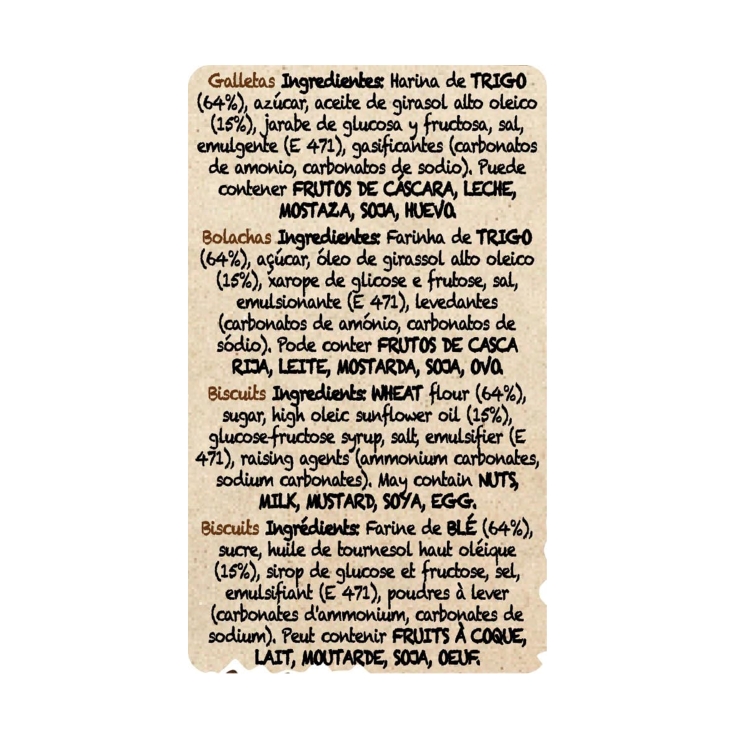 Galletas Ingredientes: Harina de TRIGO
(64%), azúcar, aceite de girasol alto oleico
(15%), jarabe de glucosa y fructosa, sal,
emulgente (E 471), gasificantes (carbonatos
de amonio, carbonatos de sodio). Puede
contener FRUTOS DE CÁSCARA, LECHE,
MOSTAZA, SOJA, HUEVO.
Bolachas Ingredientes: Farinha de TRIGO
(64%), açúcar, óleo de girassol alto oleico
(15%), xarope de glicose e frutose, sal,
emulsionante (E 471), levedantes
(carbonatos de amónio, carbonatos de
sódio). Pode conter FRUTOS DE CASCA
RIJA, LEITE, MOSTARDA, SOJA, OVO.
Biscuits Ingredients: WHEAT flour (64%),
sugar, high oleic sunflower oil (15%),
glucose-fructose syrup, salt, emulsifier (E
471), raising agents (ammonium carbonates,
sodium carbonates). May contain NUTS,
MILK, MUSTARD, SOYA, EGG.
Biscuits Ingrédients: Farine de BLÉ (64%),
sucre, huile de tournesol haut oléique
(15%), sirop de glucose et fructose, sel,
emulsifiant (E 471), poudres à lever
(carbonates d'ammonium, carbonates de
sodium). Peut contenir FRUITS À COQUE,
LAIT, MOUTARDE, SOJA, OEUF.